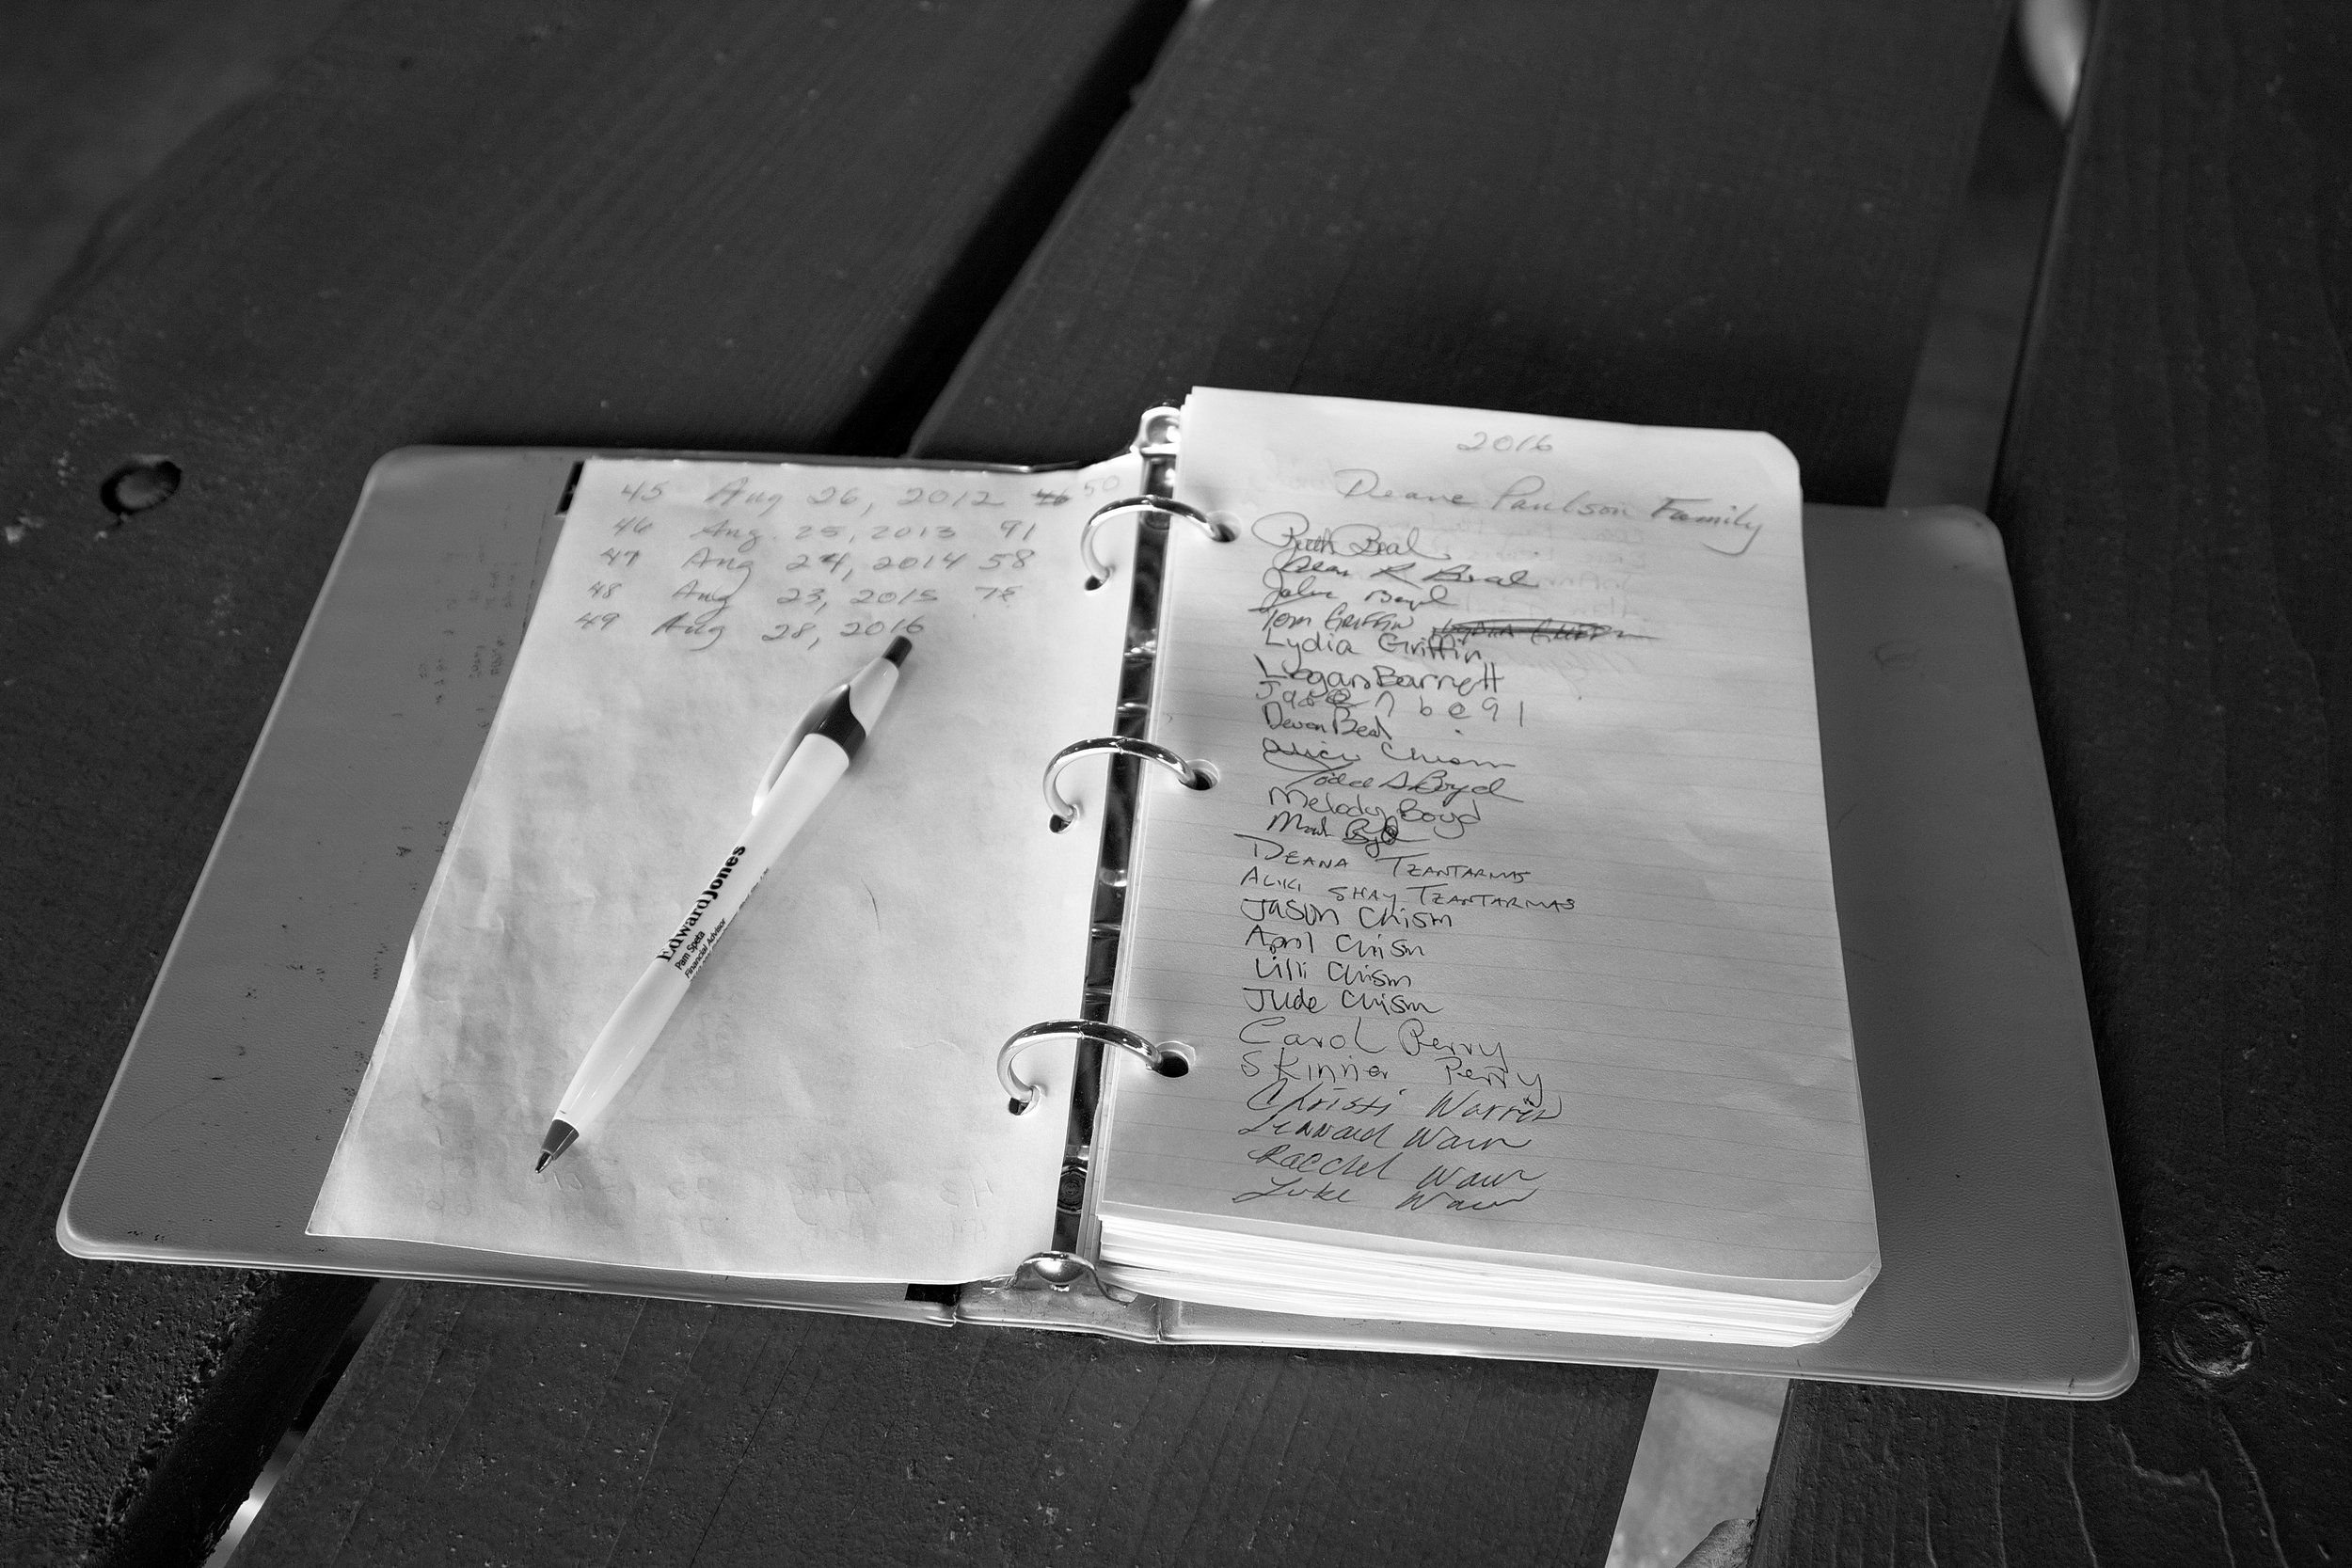 45 Aug 26, 2012 46 50
46 Aug. 25, 2013 91
47 Aug 24, 2014 58
48 Aug 23, 2015
49 Aug 28, 2016
Edward Jones
Pam Speta
Financial Advisor
2016
Deane Paulson Family
Ruth Beal
Dean R Beal
John Boyd
Tom Griffin
Lydia Griffin
Logan Barnett
beal
Devon Beal
Chism
Todd S Boyd
Melody Boyd
Mark
Deana Tzantarmas
Aliki Shay Tzantarmas
Jason Chism
April Chism
Lilli Chism
Jude Chism
Carol Perry
Skinner Perry
Christi Warren
Luke